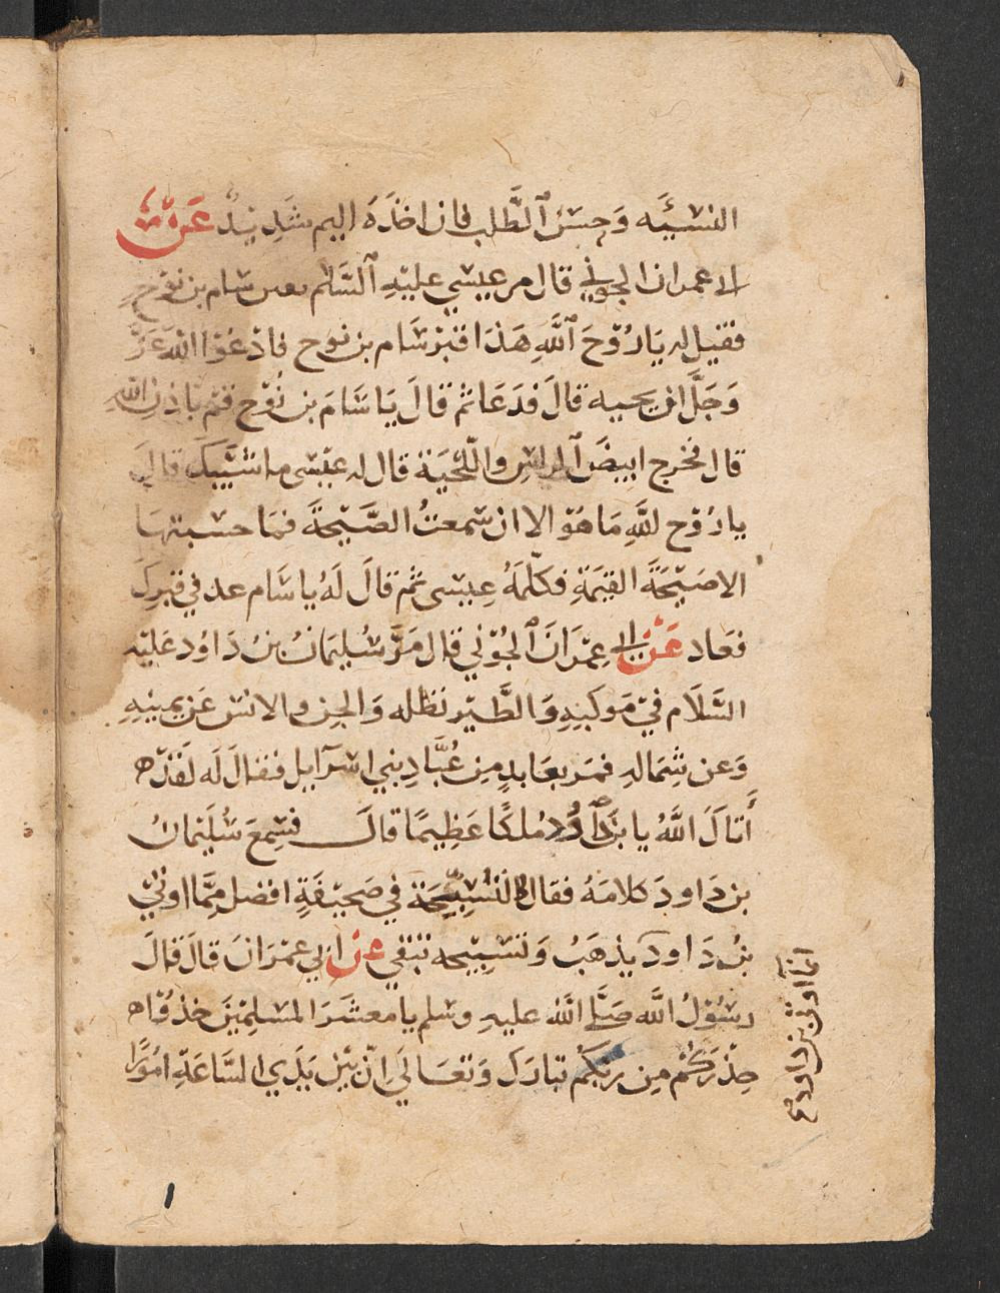 النسيئه وَحسن ٱلطَّلب فان اخذَهُ اليم شَدِيدٌ عَنْ
ابي عمران الجوني قال مر عيسي عليهِ ٱلسَّلم بقبر سَام بن نوح
فقيل له يَارُوْحَ ٱللَّهِ هَذا قبْر سَام بن نوح فادْعُوْا اللهَ عَزَّ
وَجَلَّ ان يحييه قالَ فدَعَا ثم قالَ يَا سَامَ بن نُوْح قم بَاذنِ اللهِ
قال فخرج ابيضَ ٱلراس واللّحْيَة قال له عيْسى ما شيَّبكَ قالَ
يا رُوْح اللَّهِ مَا هَوَ الا ان سَمعتُ الصَّيْحَةَ فمَا حسبتهَا
الا صَيْحَةَ القيٰمَةِ فكلّمَهُ عِيسَى ثم قالَ لَهُ يا سَام عد في قبرِكَ
فعَاد عَنْ ابي عِمْرَانَ ٱلجُوْني قال مَرَّ سُليمَانُ بنُ دَاوُد عَليْه
السَّلَام في مَوكبِهِ وَالطَّيْر تظله وَالجِن والانس عَن يمينِهِ
وَعن شِمَالهِ فمَر بعَابدٍ مِن عُبَّادِ بني اسْرَآيل فقالَ لَه لَقدْ
أَتاكَ اللَّهُ يا بنَ دَاوُد مُلكًا عَظِيمًا قالَ فسَمعَ سُليْمانُ
بن دَاودَ كلامَهُ فقال لتَسْبِيْحَة في صَحيْفَةٍ افضل مِمَّا اوتيَ
بْنُ دَاود يذهَبُ وَتسْبِيْحه تبْقي عن ابي عمْرَانَ قالَ قالَ
رسُوْلُ اللَّه صَلَّى الله عليهِ وسَلم يا معشَرَ المسْلِميْنَ خذوْا
حِذْرَكُم مِن ربِّكُم تبَارَكَ وَتعَالَي انّ بَيْن يَدَي السَّاعَةِ امُوْرًا
اوتي بن داود